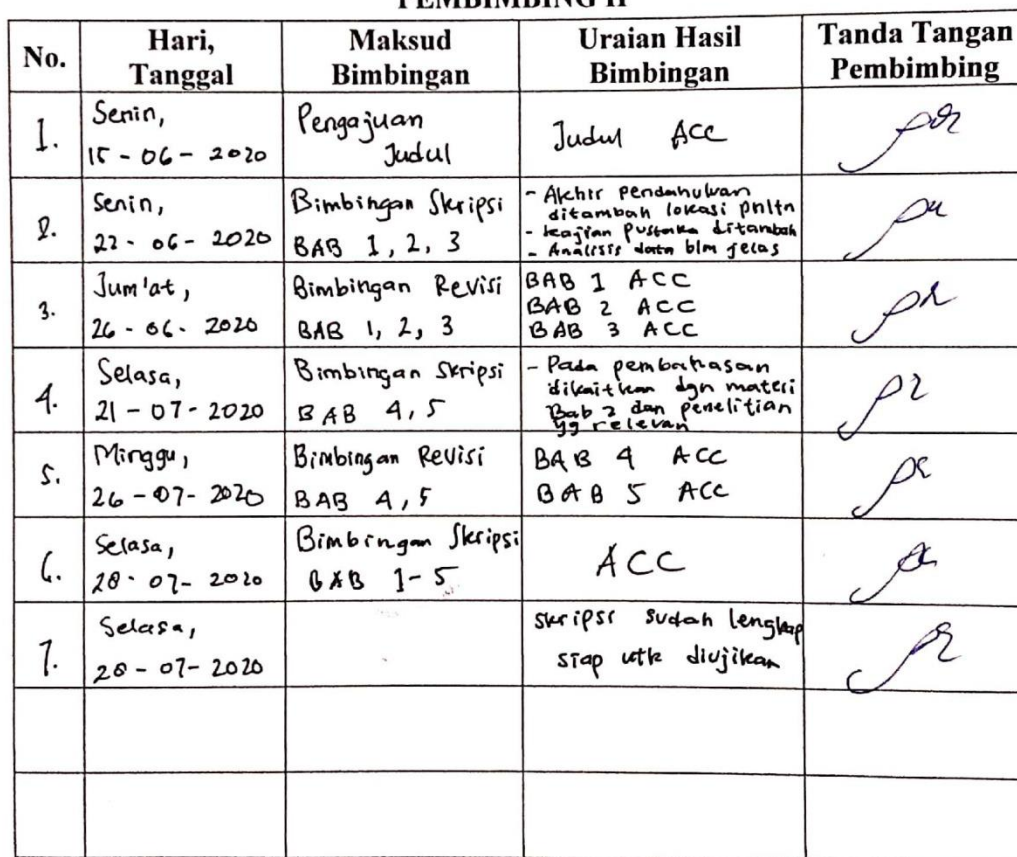 PEMBIMBING II
No.
Hari,
Tanggal
Maksud
Bimbingan
Uraian Hasil
Bimbingan
Tanda Tangan
Pembimbing
1.
Senin,
15 - 06 - 2020
Pengajuan
Judul
Judul ACC
2.
Senin,
22 - 06 - 2020
Bimbingan Skripsi
BAB 1, 2, 3
- Akhir pendahuluan
ditambah lokasi pnltn
- kajian pustaka ditambah
- Analisis data blm jelas
3.
Jum'at,
26 - 06 - 2020
Bimbingan Revisi
BAB 1, 2, 3
BAB 1 ACC
BAB 2 ACC
BAB 3 ACC
4.
Selasa,
21 - 07 - 2020
Bimbingan Skripsi
BAB 4, 5
- Pada pembahasan
dikaitkan dgn materi
Bab 2 dan penelitian
yg relevan
5.
Minggu,
26 - 07 - 2020
Bimbingan Revisi
BAB 4, 5
BAB 4 ACC
BAB 5 ACC
6.
Selasa,
28 - 07 - 2020
Bimbingan Skripsi
BAB 1 - 5
ACC
7.
Selasa,
28 - 07 - 2020
skripsi sudah lengkap
siap utk diujikan